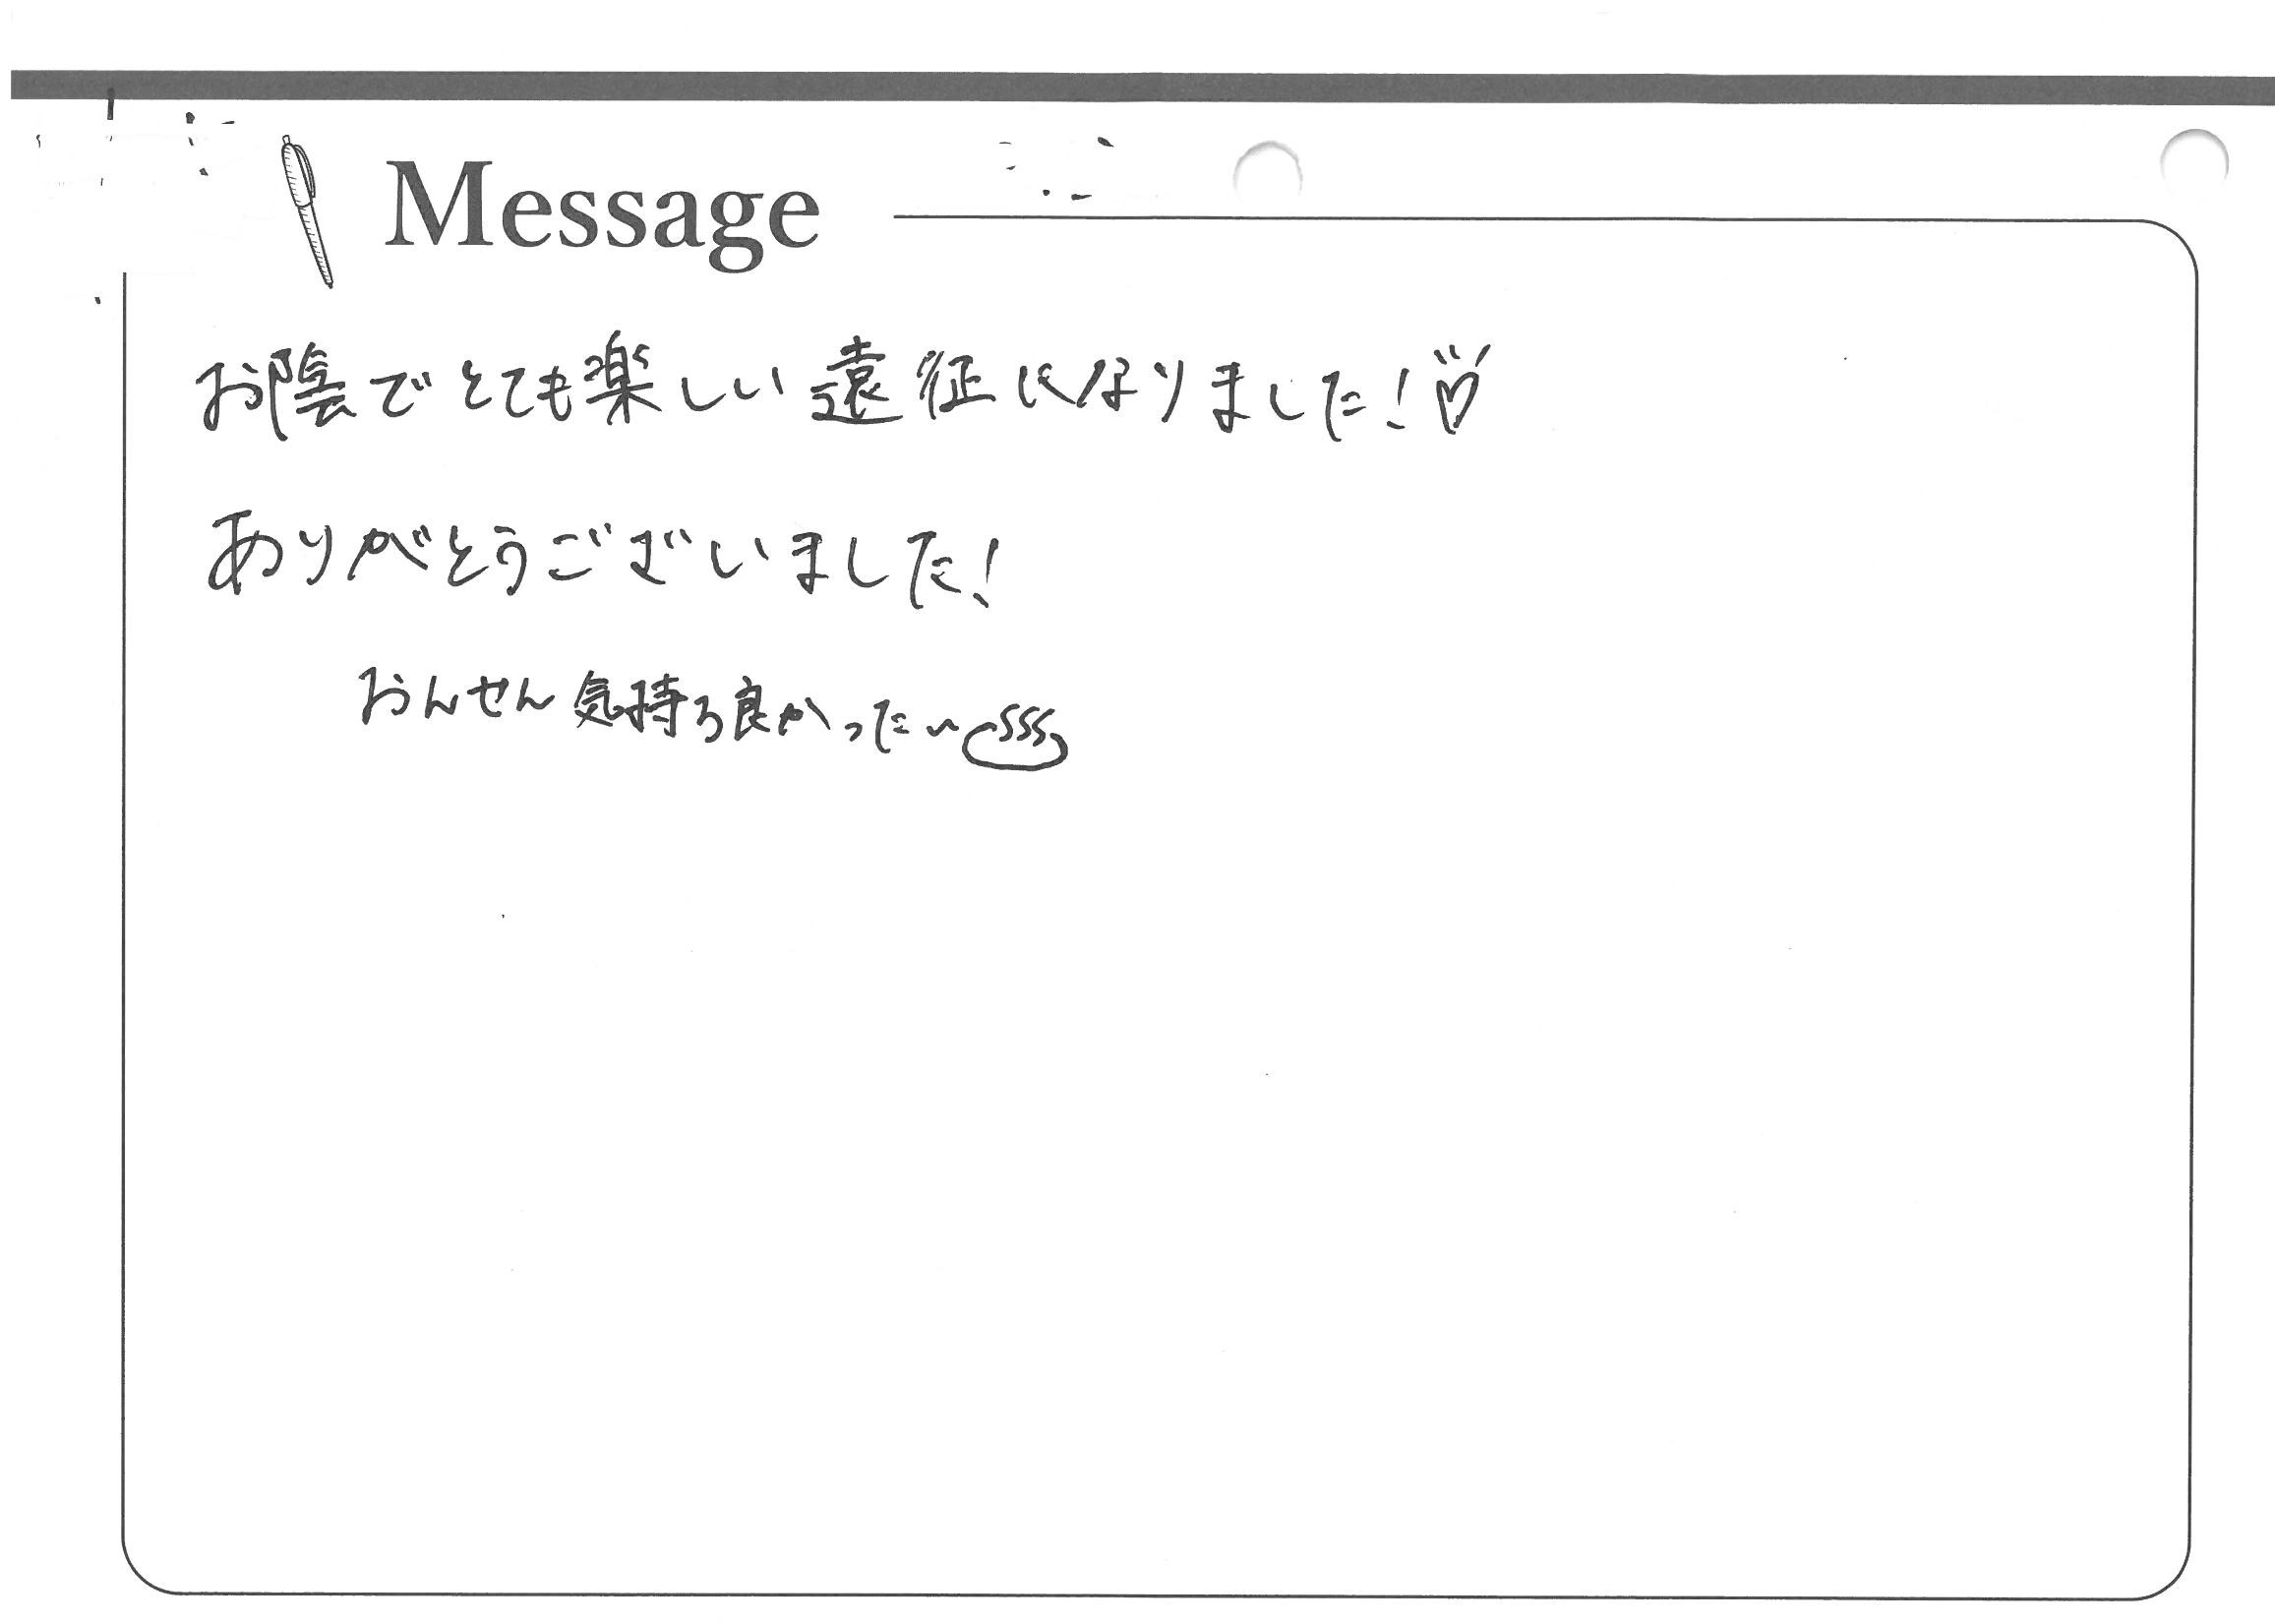 Message
お陰でとても楽しい遠征になりました!♡
ありがとうございました!
おんせん気持ち良かった〜♨